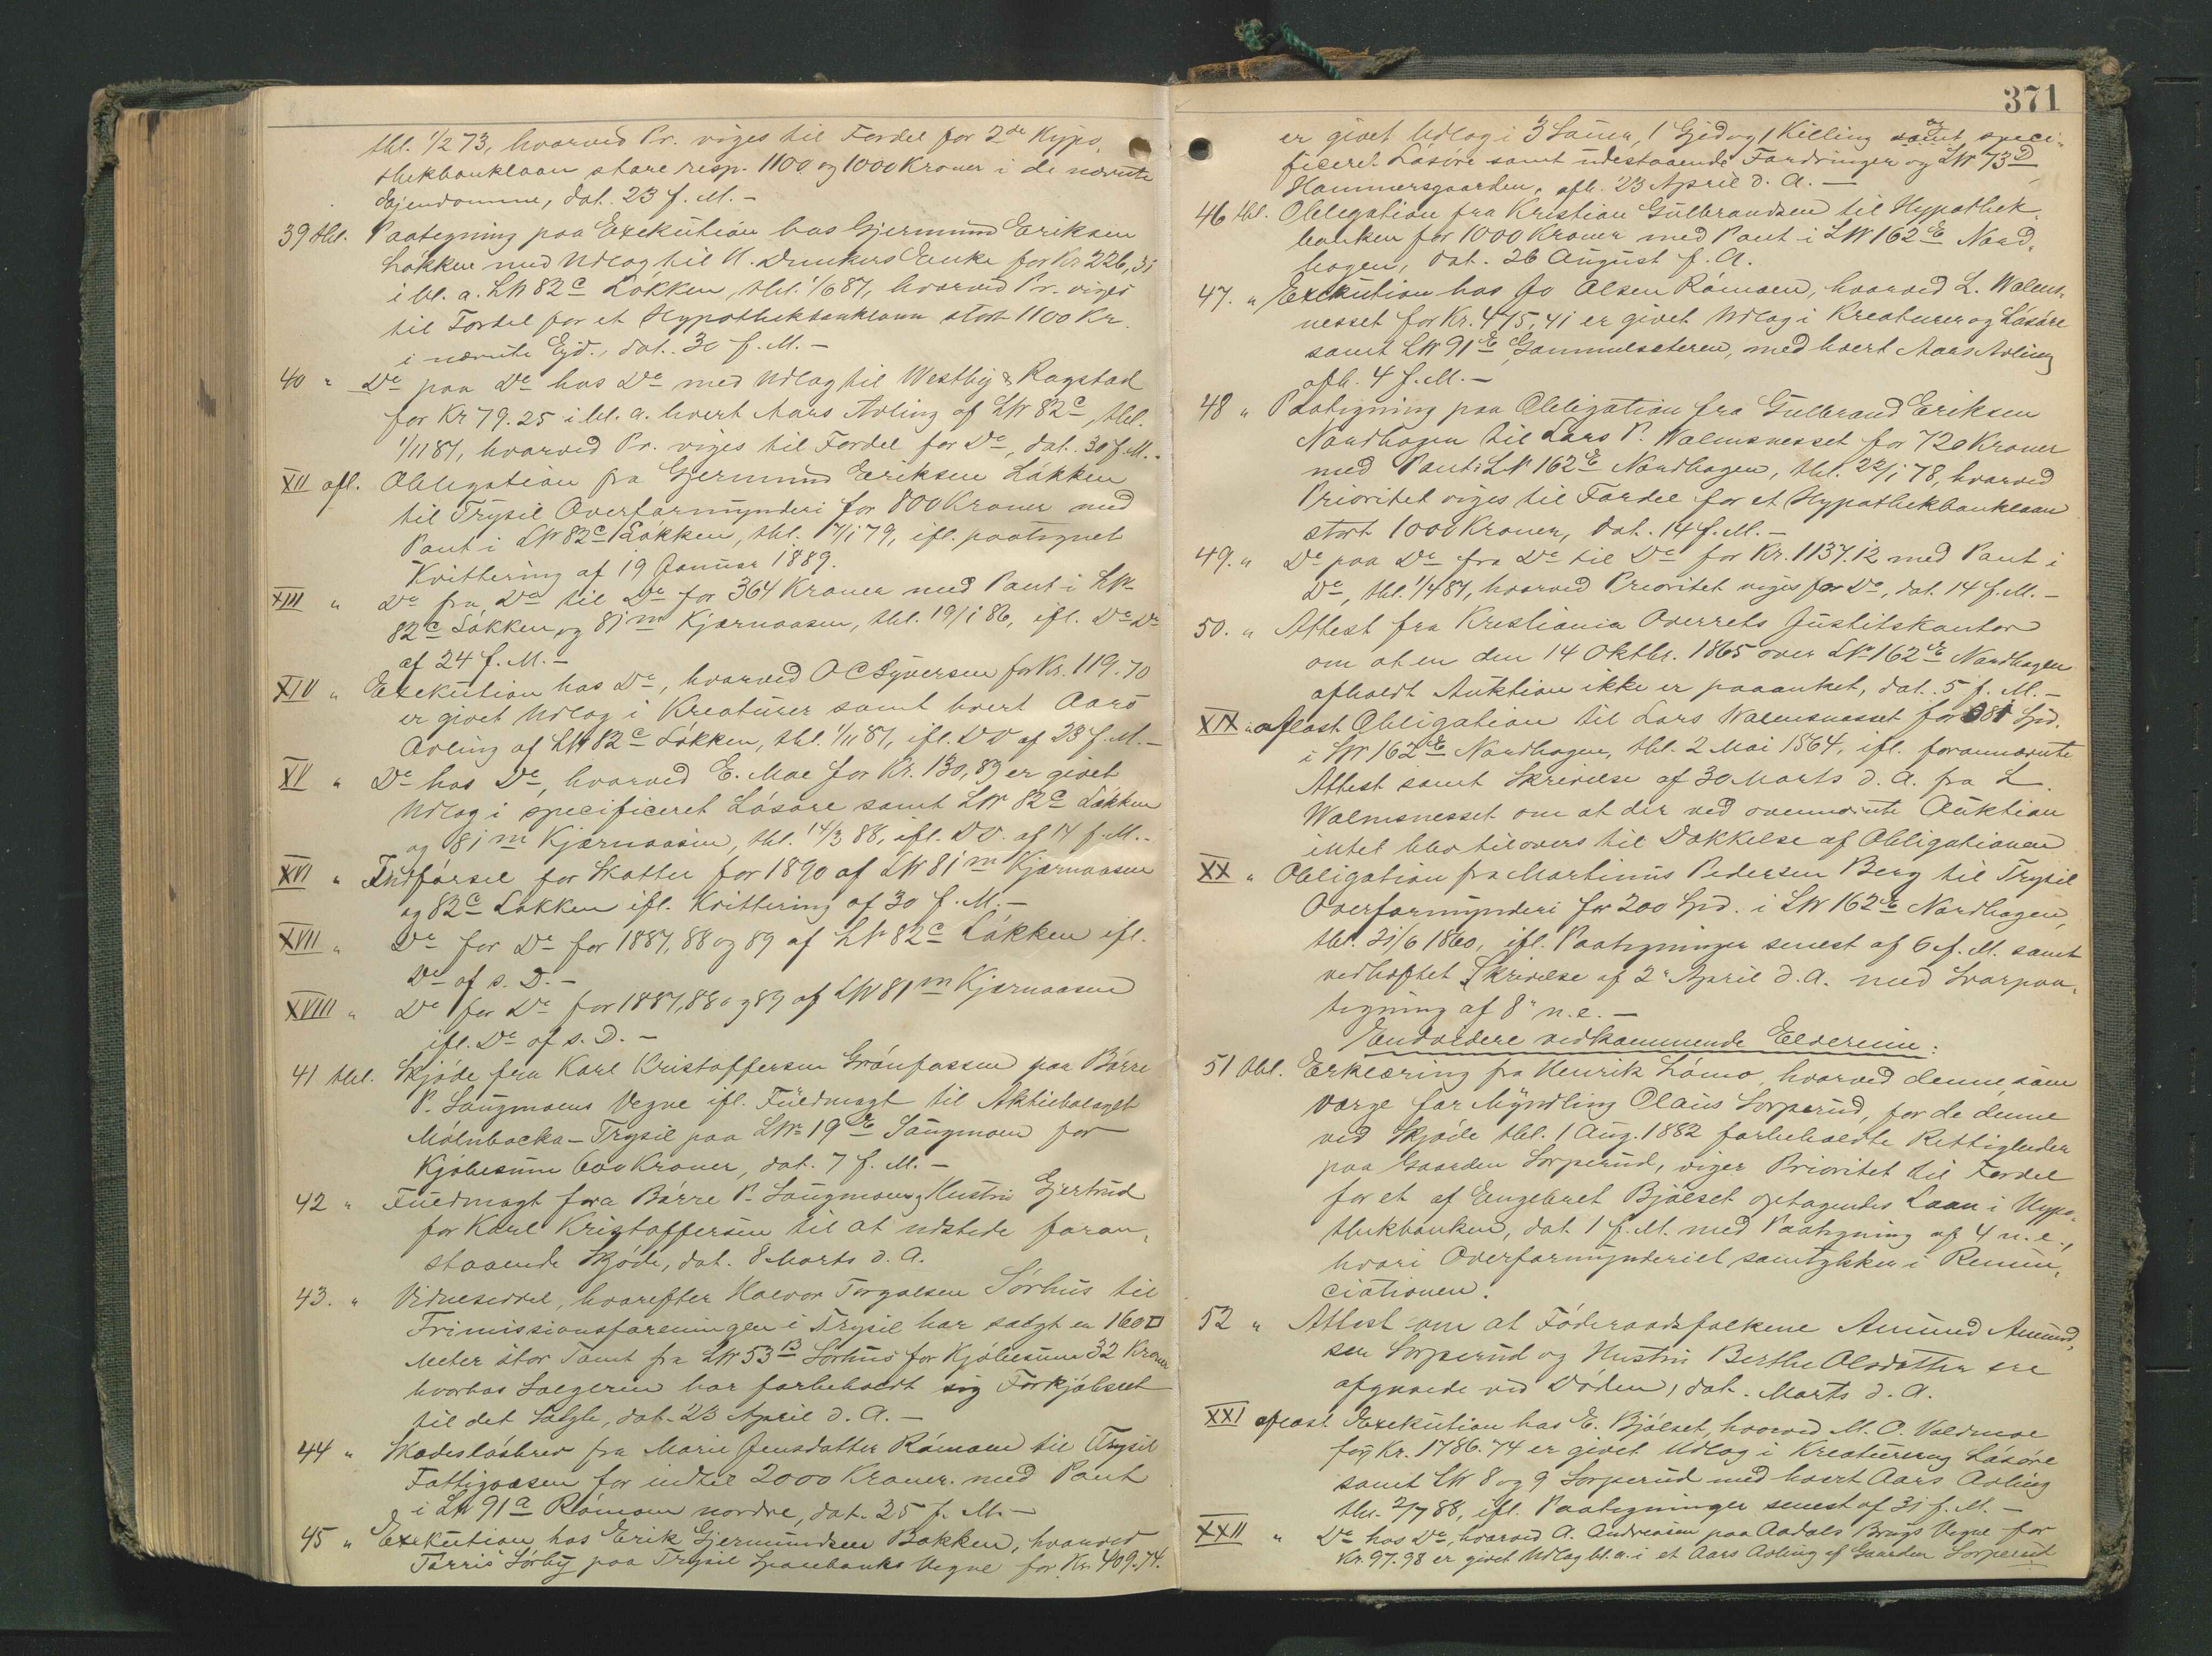 thl. 1/2 73, hvorved Pr. viges til Fordel for 2de Hypo-
thekbanklaan store resp. 1100 og 1000 Kroner i de nævnte
Ejendomme, dat. 23 f. M. -
39 thl. Paategning paa Exekution hos Gjermund Eriksen
Løkken med Udlag til H. Dunkers Enke for Kr. 226,31
i bl. a. LN 82c Løkken, thl. 1/6 87, hvorved Pr. viges
til Fordel for et Hypothekbanklaan stort 1100 Kr.
i nævnte Ejd., dat. 30 f. M. -
40 " Do paa Do hos Do med Udlag til Westby & Ragstad
for Kr 79.25 i bl. a. hvert Aars Avling af LN 82c, thl.
1/11 87, hvorved Pr. viges til Fordel for Do, dat. 30 f. M. -
XII afl. Obligation fra Gjermund Eriksen Løkken
til Trysil Overformynderi for 800 Kroner med
Pant i LN 82c Løkken, thl. 7/1 79, ifl. paategnet
Kvittering af 19 Januar 1889.
XIII " Do fra Do til Do for 364 Kroner med Pant i LN
82c Løkken og 81m Kjærnaasen, thl. 19/1 86, ifl. Do Do
af 24 f. M. -
XIV " Exekution hos Do, hvorved O C Syversen for Kr. 119.70
er givet Udlag i Kreaturer samt hvert Aars
Avling af LN 82c Løkken, thl. 1/11 87, ifl. DD af 23 f. M. -
XV " Do hos Do, hvorved E. Moe for Kr. 130,89 er givet
Udlag i specificeret Løsøre samt LN 82c Løkken
og 81m Kjærnaasen, thl. 14/3 88, ifl. DD. af 14 f. M. -
XVI " Indførsel for Skatter for 1890 af LN 81m Kjærnaasen
og 82c Løkken ifl. Kvittering af 30 f. M. -
XVII " Do for Do for 1887, 88 og 89 af LN 82c Løkken ifl.
Do af s. D. -
XVIII " Do for Do for 1887, 88 og 89 af LN 81m Kjærnaasen
ifl. Do af s. D. -
41 thl. Skjøde fra Karl Kristoffersen Grønfossen paa Børre
P. Saugmoens Vegne ifl. Fuldmagt til Aktiebolaget
Mölnbacka-Trysil paa LN 19E Saugmoen for
Kjøbesum 600 Kroner, dat. 7 f. M. -
42 " Fuldmagt fra Børre P. Saugmoen og Hustru Gjertrud
for Karl Kristoffersen til at udstede foran-
staaende Skjøde, dat. 8 Marts d. A.
43. " Vidneseddel, hvorefter Halvor Torgalsen Sørhus til
Frimissionsforeningen i Trysil har solgt en 160 □
Meter stor Tomt fra LN 53B Sørhus for Kjøbesum 32 Kroner
hvorhos Sælgeren har forbeholdt sig Forkjøbsret
til det Solgte, dat. 23 April d. A. -
44 " Skadesløsbrev fra Marie Jensdatter Römoen til Trysil
Fattigvæsen for indtil 2000 Kroner med Pant
i LN 91a Römoen nordre, dat. 25 f. M. -
45 " Exekution hos Erik Gjermundsen Bakken, hvorved
Tarris Sørby paa Trysil Sparebanks Vegne for Kr. 409.74.
371
er givet Udlag i 3 Sauer, 1 Gjed og 1 Killing og samt speci-
ficeret Løsøre samt udestaaende Fordringer og LN 73D
Hammersgaarden, afh. 23 April d. A. -
46 thl. Obligation fra Kristian Gulbrandsen til Hypothek-
banken for 1000 Kroner med Pant i LN 162E Nord-
hagen, dat. 26 August f. A.
47. " Exekution hos Jo Olsen Römoen, hvorved L. Walms-
nesset for Kr. 475,41 er givet Udlag i Kreaturer og Løsøre
samt LN 91E Gammelseteren, med hvert Aars Avling
afh. 4 f. M. -
48 " Paategning paa Obligation fra Gulbrand Eriksen
Nordhagen til Lars P. Walmsnesset for 720 Kroner
med Pant i LN 162E Nordhagen, thl. 22/1 78, hvorved
Prioritet viges til Fordel for et Hypothekbanklaan
stort 1000 Kroner, dat. 14 f. M. -
49. " Do paa Do fra Do til Do for Kr. 1137.12 med Pant i
Do, thl. 1/4 87, hvorved Prioritet viges for Do, dat. 14 f. M. -
50. " Attest fra Kristiania Overrets Justitskontor
om at en den 14 Oktbr. 1865 over LN 162E Nordhagen
afholdt Auktion ikke er paaanket, dat. 5 f. M. -
XIX aflæst Obligation til Lars Walmsnesset for 81 Spd.
i LN 162E Nordhagen, thl. 2 Mai 1864, ifl. forannævnte
Attest samt Skrivelse af 30 Marts d. A. fra L.
Walmsnesset om at der ved ovennævnte Auktion
intet blev tilovers til Dækkelse af Obligationen
XX " Obligation fra Martinus Pedersen Berg til Trysil
Overformynderi for 200 Spd. i LN 162E Nordhagen,
thl. 21/6 1860, ifl. Paategninger senest af 6 f. M. samt
vedhæftet Skrivelse af 2 April d. A. med Svarpaa-
tegning af 8 n. e. -
Endvidere vedkommende Elverum:
51 thl. Erklæring fra Henrik Lømo, hvorved denne som
Værge for Myndling Olaus Sorperud, for de denne
ved Skjøde thl. 1 Aug. 1882 forbeholdte Rettigheder
paa Gaarden Sorperud, viger Prioritet til Fordel
for et af Engebret Bjølset optagendes Laan i Hypo-
thekbanken, dat. 1 f. M. med Paategning af 4 n. e.,
hvori Overformynderiet samtykker i Renun-
ciationen.
52 " Attest om at Föderaadsfolkene Amund Amund-
sen Sorperud og Hustru Berthe Olsdatter ere
afgaaede ved Döden, dat. Marts d. A.
XXI aflæst Exekution hos E. Bjølset, hvorved M. O. Voldmoe
for Kr. 1786.74 er givet Udlag i Kreaturer og Løsøre
samt LN 8 og 9 Sorperud med hvert Aars Avling
thl. 2/7 88, ifl. Paategninger senest af 31 f. M. -
XXII " Do hos Do, hvorved A. Andreasen paa Aadals Brugs Vegne for
Kr. 97.98 er givet Udlag bl. a. i et Aars Avling af Gaarden Sorperud